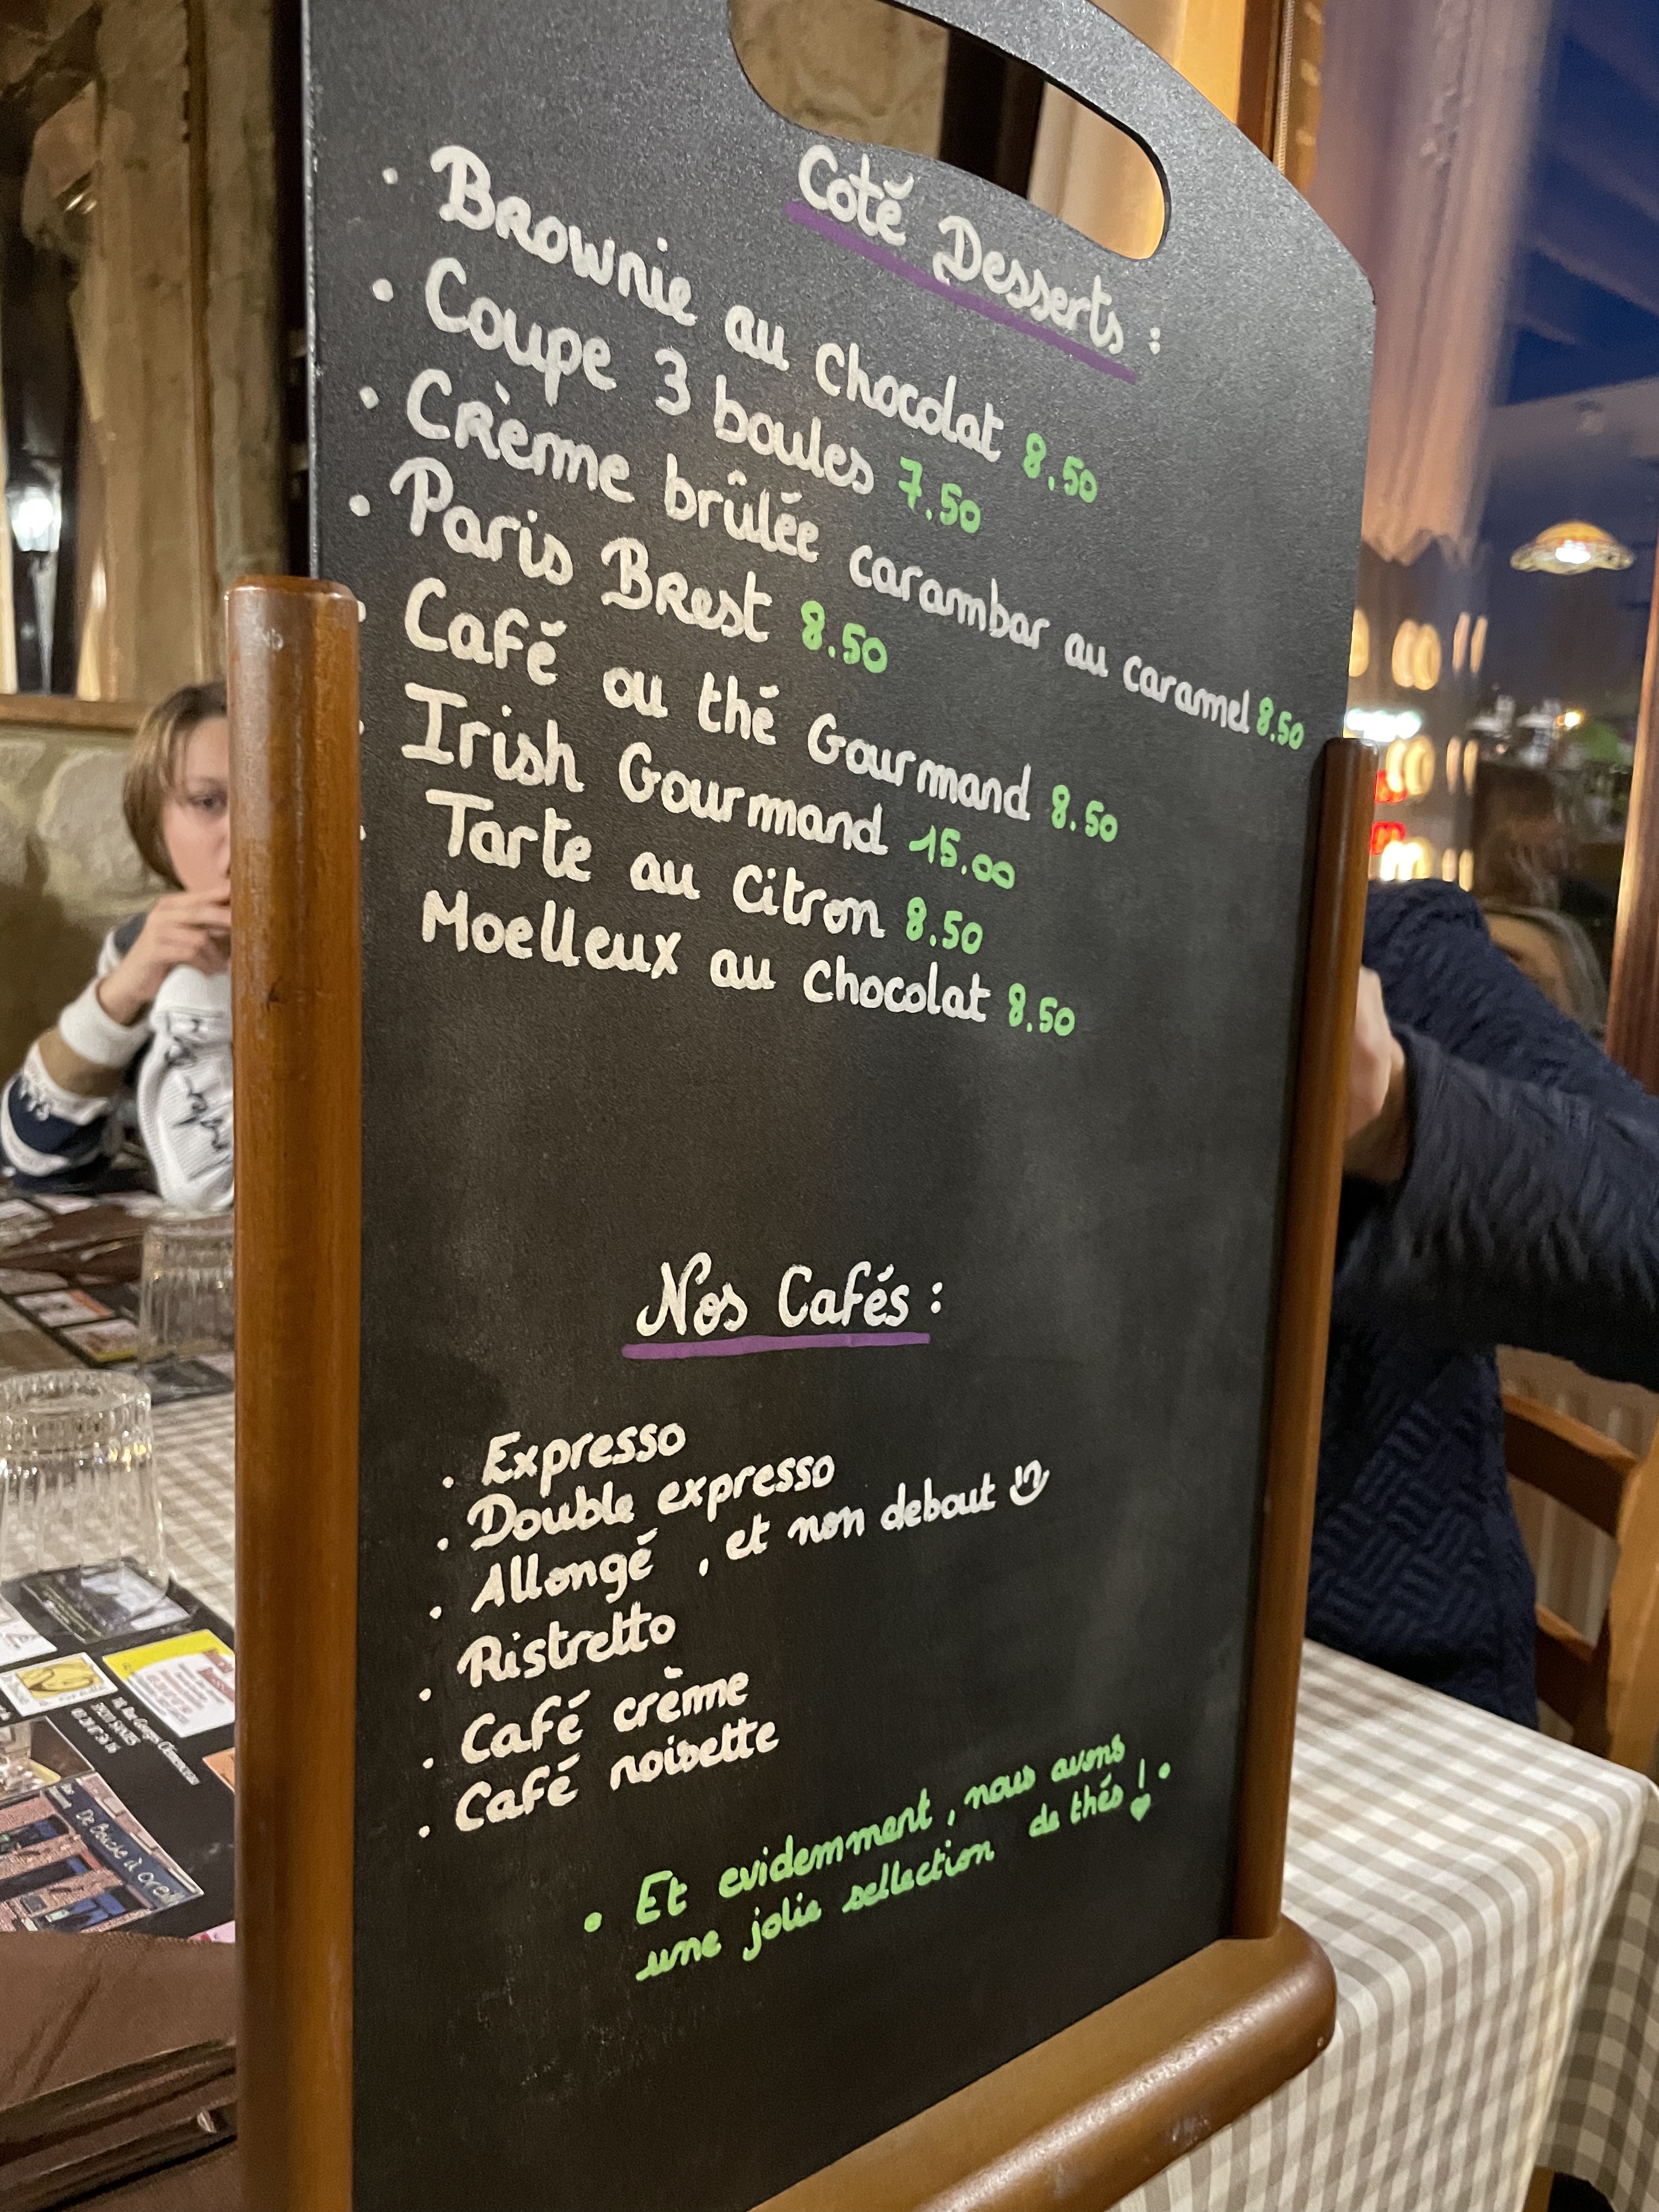 Coté Desserts :
• Brownie au chocolat 8.50
• Coupe 3 boules 7.50
• Crème brûlée carambar au caramel 8.50
• Paris Brest 8.50
Café ou thé Gourmand 8.50
Irish Gourmand 15.00
Tarte au citron 8.50
Moelleux au chocolat 8.50
Nos Cafés :
. Expresso
. Double expresso
. Allongé , et non debout
. Ristretto
. Café crème
. Café noisette
• Et evidemment, nous avons
une jolie sellection de thés ! •
De Bouche à Oreille